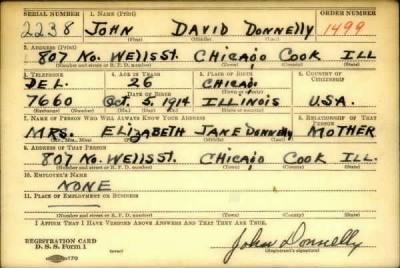 SERIAL NUMBER 1. NAME (Print) ORDER NUMBER
2238 JOHN DAVID DONNELLY 1499
(First) (Middle) (Last)
2. ADDRESS (Print)
807 No. Wells St. CHICAGO COOK ILL
(Number and street or R. F. D. number) (Town) (County) (State)
3. TELEPHONE 4. AGE IN YEARS 5. PLACE OF BIRTH 6. COUNTRY OF CITIZENSHIP
DEL. 26 CHICAGO
DATE OF BIRTH (Town or county)
7660 Oct. 5, 1914 ILLINOIS U.S.A.
(Mo.) (Day) (Yr.) (State or country)
7. NAME OF PERSON WHO WILL ALWAYS KNOW YOUR ADDRESS 8. RELATIONSHIP OF THAT PERSON
MRS. ELIZABETH JANE DONNELLY MOTHER
(Mr., Mrs., Miss) (First) (Middle) (Last)
9. ADDRESS OF THAT PERSON
807 No. Wells St. CHICAGO COOK ILL.
(Number and street or R. F. D. number) (Town) (County) (State)
10. EMPLOYER'S NAME
NONE
11. PLACE OF EMPLOYMENT OR BUSINESS
(Number and street or R. F. D. number) (Town) (County) (State)
I AFFIRM THAT I HAVE VERIFIED ABOVE ANSWERS AND THAT THEY ARE TRUE.
REGISTRATION CARD John Donnelly
D. S. S. Form 1 (Registrant's signature)